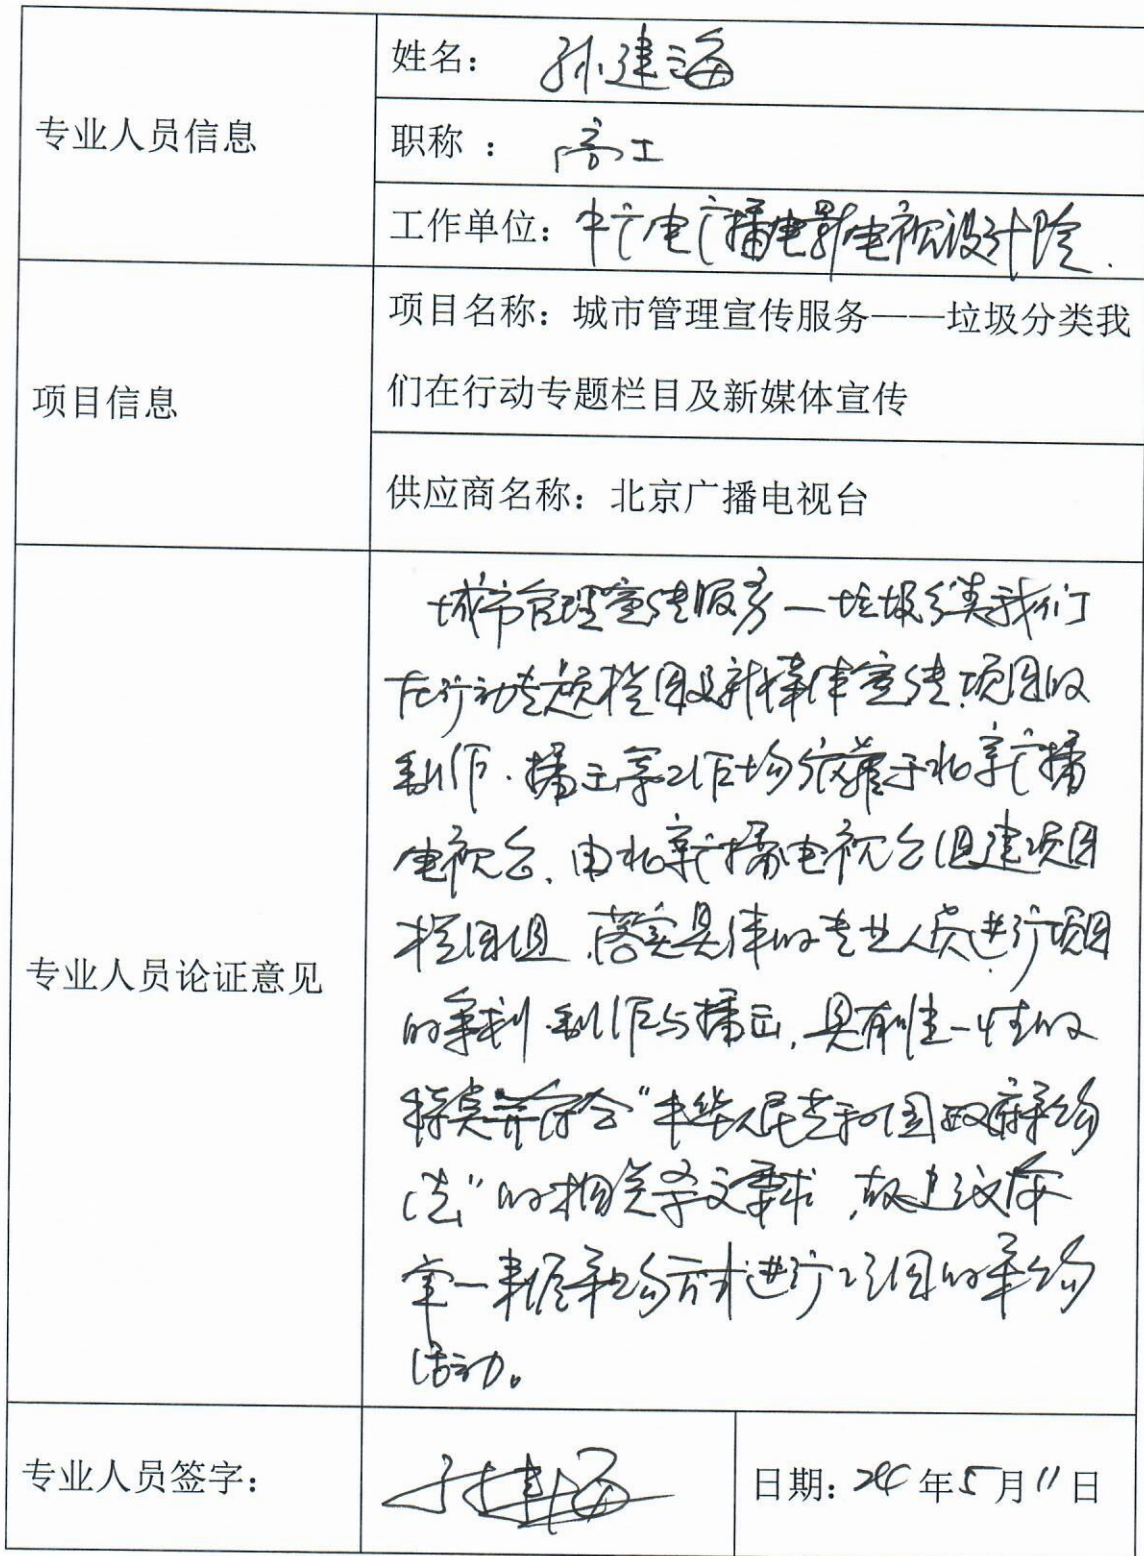 专业人员信息
姓名: 孙建海
职称 : 高工
工作单位: 中广电广播电影电视设计院.
项目信息
项目名称: 城市管理宣传服务——垃圾分类我
们在行动专题栏目及新媒体宣传
供应商名称: 北京广播电视台
专业人员论证意见
城市管理宣传服务—垃圾分类我们
在行动专题栏目及新媒体宣传项目的
制作、播出等工作均依靠于北京广播
电视台,由北京广播电视台组建项目
栏目组,落实具体的专业人员进行项目
的采制、制作与播出,具有唯一性的
特点并符合"中华人民共和国政府采购
法"的相关条文要求,故建议按
单一来源采购方式进行项目的采购
活动。
专业人员签字: 孙建海
日期: 年5月11日